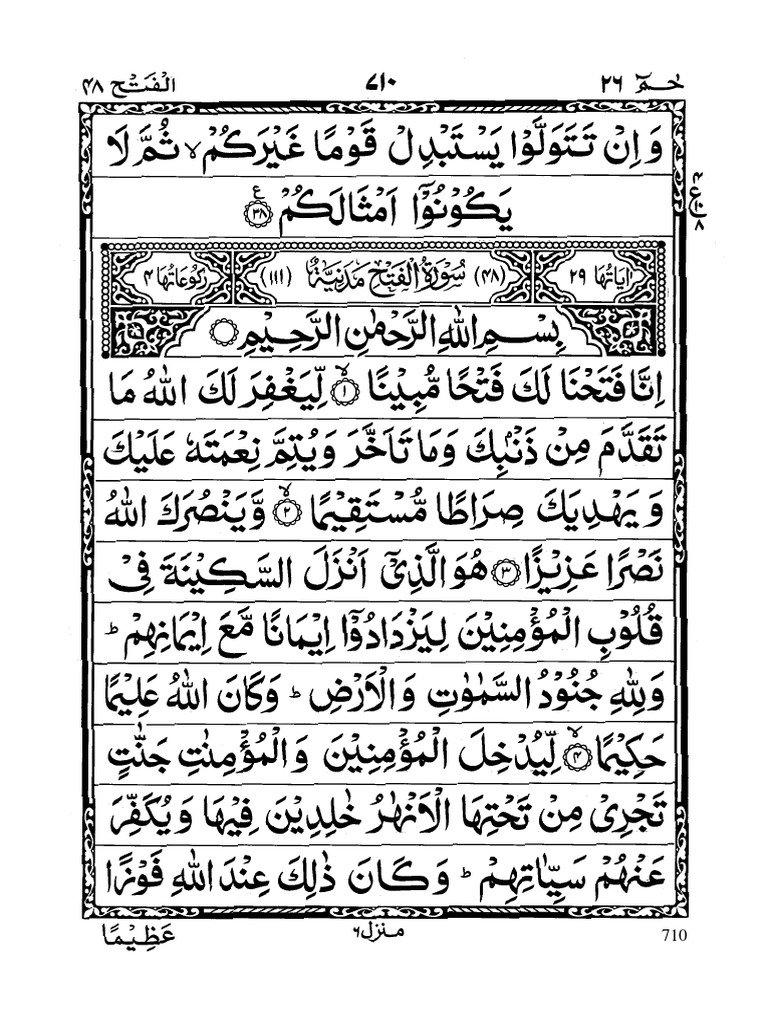 حٰمٓ ۲۶
۷۱۰
الۡفَتۡح ۴۸
وَاِنۡ تَتَوَلَّوۡا يَسۡتَبۡدِلۡ قَوۡمًا غَيۡرَكُمۡ ۙ ثُمَّ لَا
يَكُوۡنُوۡۤا اَمۡثَالَكُمۡ ﴿۳۸﴾ ع
۴
ع ۱۰
۸
اٰيَاتُهَا ۲۹
(۴۸) سُوۡرَةُ الۡفَتۡحِ مَدَنِيَّةٌ (۱۱۱)
رُكُوۡعَاتُهَا ۴
بِسۡمِ اللّٰهِ الرَّحۡمٰنِ الرَّحِيۡمِ
اِنَّا فَتَحۡنَا لَكَ فَتۡحًا مُّبِيۡنًا ۙ﴿۱﴾ لِّيَغۡفِرَ لَكَ اللّٰهُ مَا
تَقَدَّمَ مِنۡ ذَنۡۢبِكَ وَمَا تَاَخَّرَ وَيُتِمَّ نِعۡمَتَهٗ عَلَيۡكَ
وَيَهۡدِيَكَ صِرَاطًا مُّسۡتَقِيۡمًا ۙ﴿۲﴾ وَّيَنۡصُرَكَ اللّٰهُ
نَصۡرًا عَزِيۡزًا ﴿۳﴾ هُوَ الَّذِىۡۤ اَنۡزَلَ السَّكِيۡنَةَ فِىۡ
قُلُوۡبِ الۡمُؤۡمِنِيۡنَ لِيَزۡدَادُوۡۤا اِيۡمَانًا مَّعَ اِيۡمَانِهِمۡ ؕ
وَلِلّٰهِ جُنُوۡدُ السَّمٰوٰتِ وَالۡاَرۡضِ ؕ وَكَانَ اللّٰهُ عَلِيۡمًا
حَكِيۡمًا ۙ﴿۴﴾ لِّيُدۡخِلَ الۡمُؤۡمِنِيۡنَ وَالۡمُؤۡمِنٰتِ جَنّٰتٍ
تَجۡرِىۡ مِنۡ تَحۡتِهَا الۡاَنۡهٰرُ خٰلِدِيۡنَ فِيۡهَا وَيُكَفِّرَ
عَنۡهُمۡ سَيِّاٰتِهِمۡ ؕ وَكَانَ ذٰلِكَ عِنۡدَ اللّٰهِ فَوۡزًا
710
منزل ۶
عَظِيۡمًا